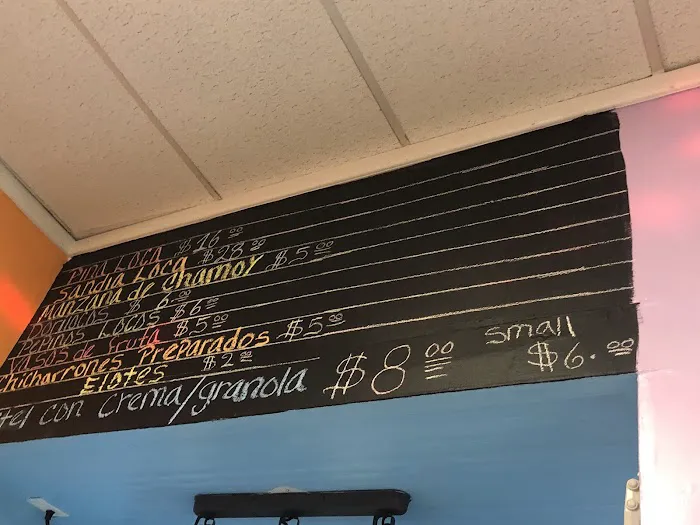 Piña Loca $16.00
Sandia Loca $28.00
Manzana de Chamoy $5.00
Dorilocos $6.00
Pepinos Locos $6.00
Vasos de fruta $5.00
chicharrones Preparados $5.00
Elotes $2.00
tel con crema/granola $8.00 small $6.00